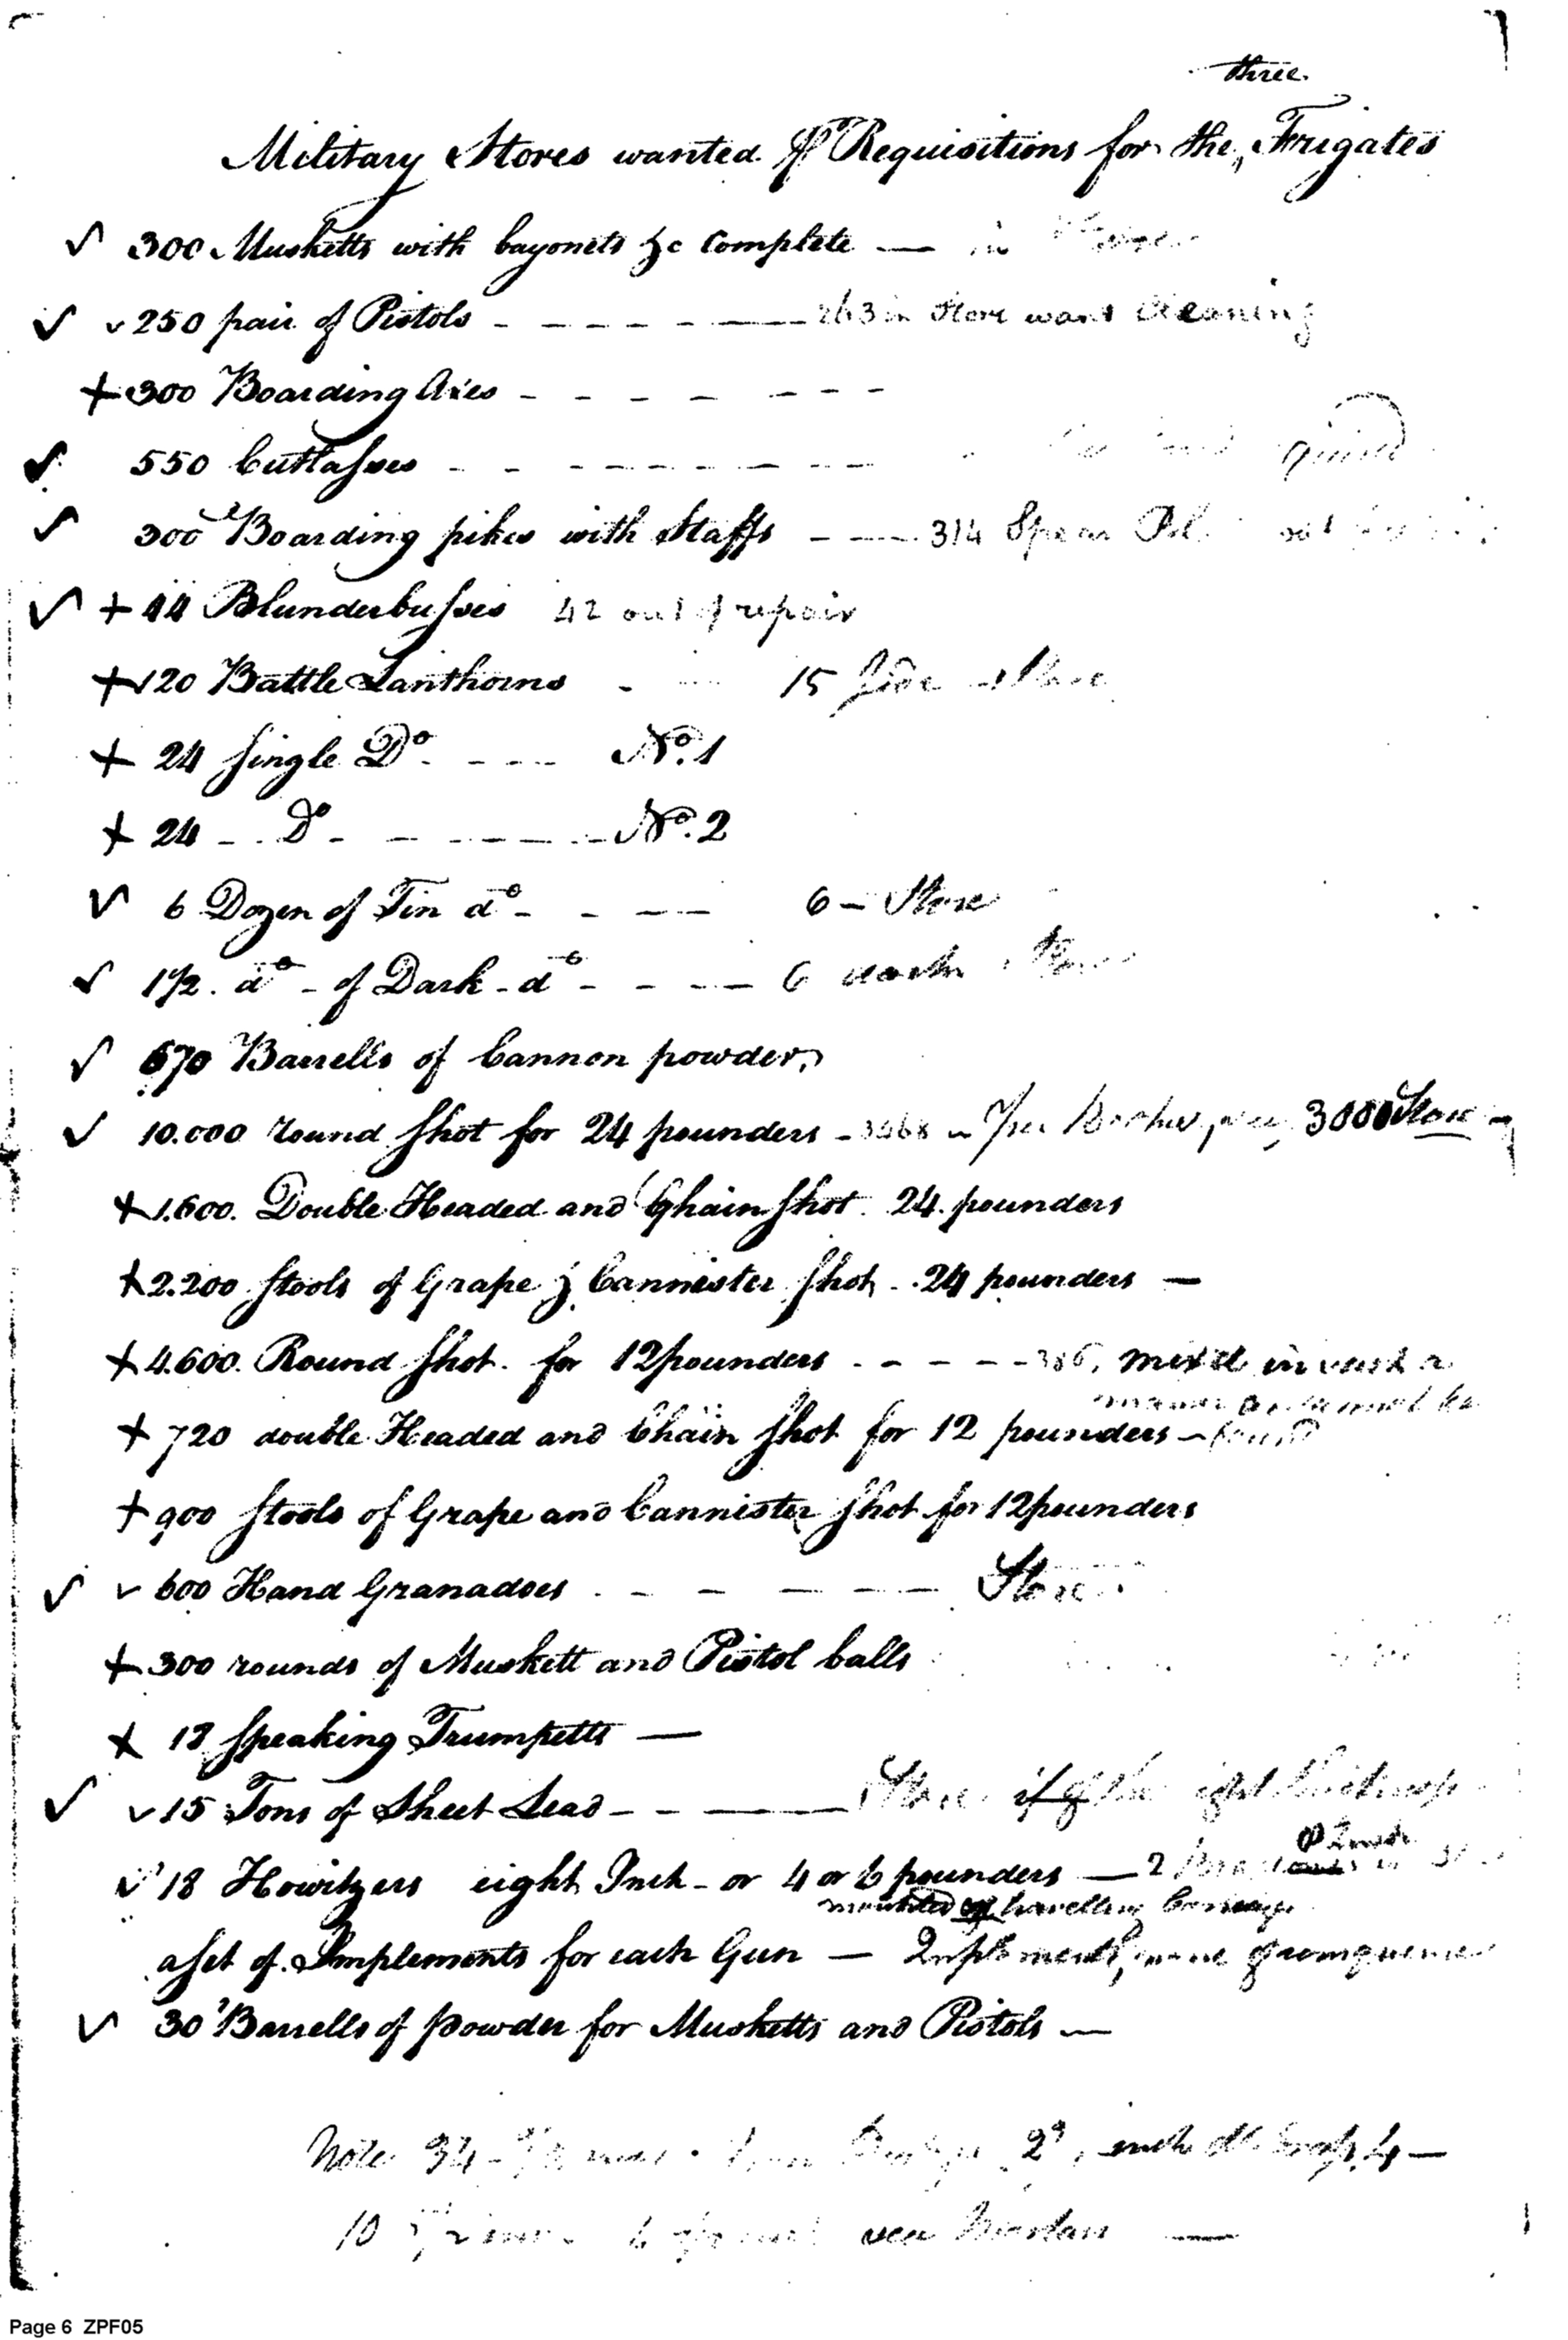 three
Military Stores wanted pr Requisitions for the Frigates
✓ 300 Musketts with bayonets &c Complete — in
✓ ✓ 250 pair of Pistols - - - - - 263 in Store want Cleaning
+ 300 Boarding Axes - - - - - - -
✓ 550 Cutlasses - - - - - - - -
✓ 300 Boarding pikes with Staffs - - - 314 Spear
✓ + 44 Blunderbusses 42 out of repair
+ ✓ 120 Battle Lanthorns - - 15
+ 24 single Do. - - - No. 1
+ 24 - - Do - - - - - - No. 2
✓ 6 Dozen of Tin do - - - - 6 - Store
✓ 1 1/2. do - of Dark - do - - - - 6 dark
✓ 670 Barrells of Cannon powder,
✓ 10.000 round shot for 24 pounders - 3468 3000 Store
+ 1.600. Double Headed and Chain shot. 24. pounders
+ 2.200 stools of Grape & Cannister shot - 24 pounders —
+ 4.600. Round shot. for 12 pounders - - - - - 386, mix'd in such a
manner as cannot be
+ 720 double Headed and Chain shot for 12 pounders - found
+ 900 stools of Grape and Cannister shot for 12 pounders
✓ ✓ 600 Hand Granadoes - - - - - Store
+ 300 rounds of Muskett and Pistol balls
+ 18 speaking Trumpetts —
✓ ✓ 15 Tons of Sheet Lead - - — Store if of the right thickness
✓ 18 Howitzers eight Inch - or 4 or 6 pounders — 2
mounted on travelling Carriage
a set of Implements for each Gun — Implements, none of consequence
✓ 30 Barrells of powder for Musketts and Pistols —
Note 34 2 inch
10
Page 6 ZPF05